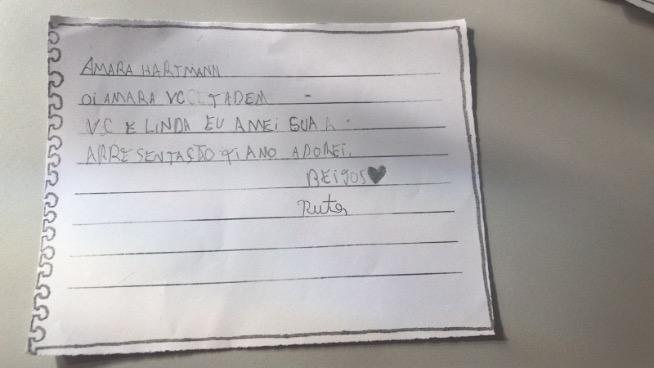 AMARA HARTMANN
OI AMARA VC TADEM
VC E LINDA EU AMEI SUA
APRESENTAÇÃO ADOREI.
BEIJOS♥
Rute